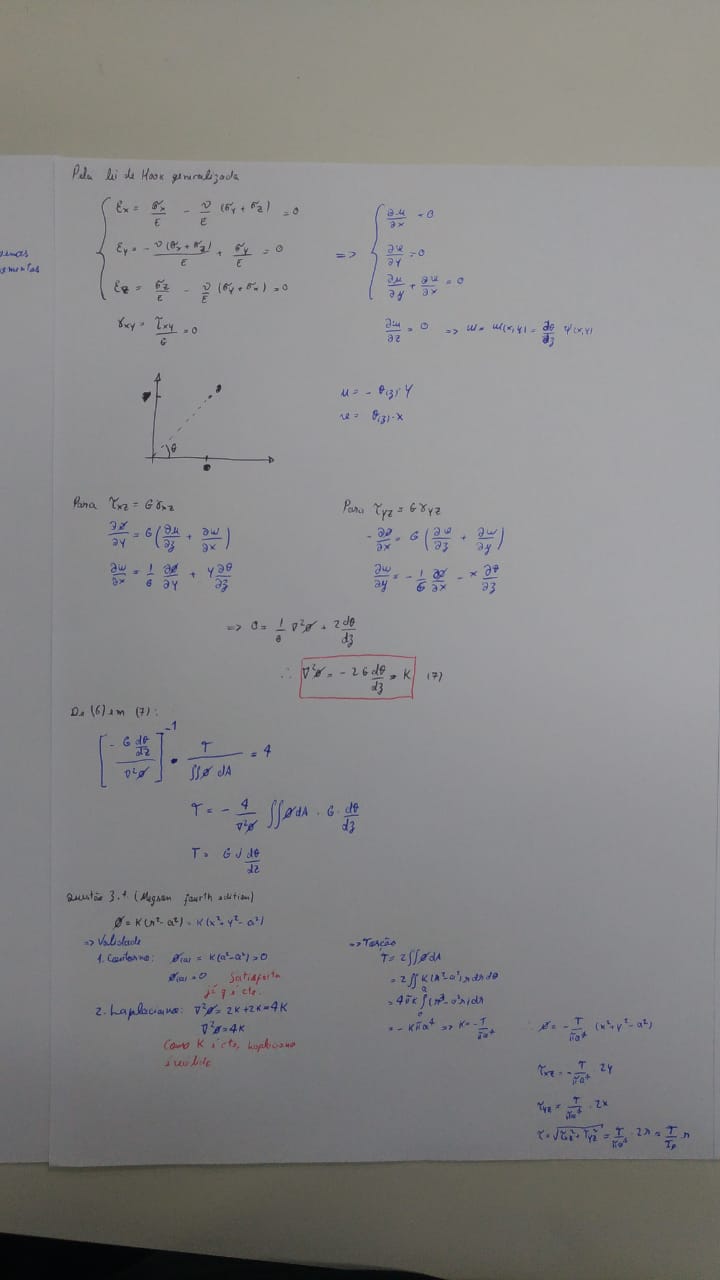 emas
ementos
Pela lei de Hook generalizada
εx = σx/E - ν/E (σy + σz) = 0
εy = - ν(σx + σz)/E + σy/E = 0
εz = σz/E - ν/E (σy + σx) = 0
γxy = τxy/G = 0
=> ∂u/∂x = 0
∂v/∂y = 0
∂u/∂y + ∂v/∂x = 0
∂w/∂z = 0 => w = w(x,y) = dθ/dz ψ(x,y)
θ
u = - θ(z)·y
v = θ(z)·x
Para τxz = Gγxz
∂ø/∂y = G(∂u/∂z + ∂w/∂x)
∂w/∂x = 1/G ∂ø/∂y + y ∂θ/∂z
Para τyz = Gγyz
-∂ø/∂x = G(∂v/∂z + ∂w/∂y)
∂w/∂y = - 1/G ∂ø/∂x - x ∂θ/∂z
=> 0 = 1/G ∇²ø + 2 dθ/dz
∴ ∇²ø = - 2G dθ/dz = K (7)
De (6) em (7):
[- G dθ/dz / ∇²ø]⁻¹ • T / ∬ø dA = 4
T = - 4/∇²ø ∬ø dA · G · dθ/dz
T = GJ dθ/dz
Questão 3.1. (Megson fourth edition)
ø = K(r² - a²) = K(x² + y² - a²)
=> Validade
1. Contorno: ø(a) = K(a² - a²) = 0
ø(a) = 0 Satisfeita
já q é cte.
2. Laplaciano: ∇²ø = 2K + 2K = 4K
∇²ø = 4K
Como K é cte, Laplaciano
é válido
=> Torção
T = 2∬ødA
= 2∬K(r² - a²)r dr dθ
= 4πK∫₀ᵃ(r³ - a²r)dr
= - Kπa⁴ => K = - T/πa⁴
ø = - T/πa⁴ (x² + y² - a²)
τxz = - T/πa⁴ 2y
τyz = T/πa⁴ · 2x
τ = √(τxz² + τyz²) = T/πa⁴ · 2r = T/Ip r